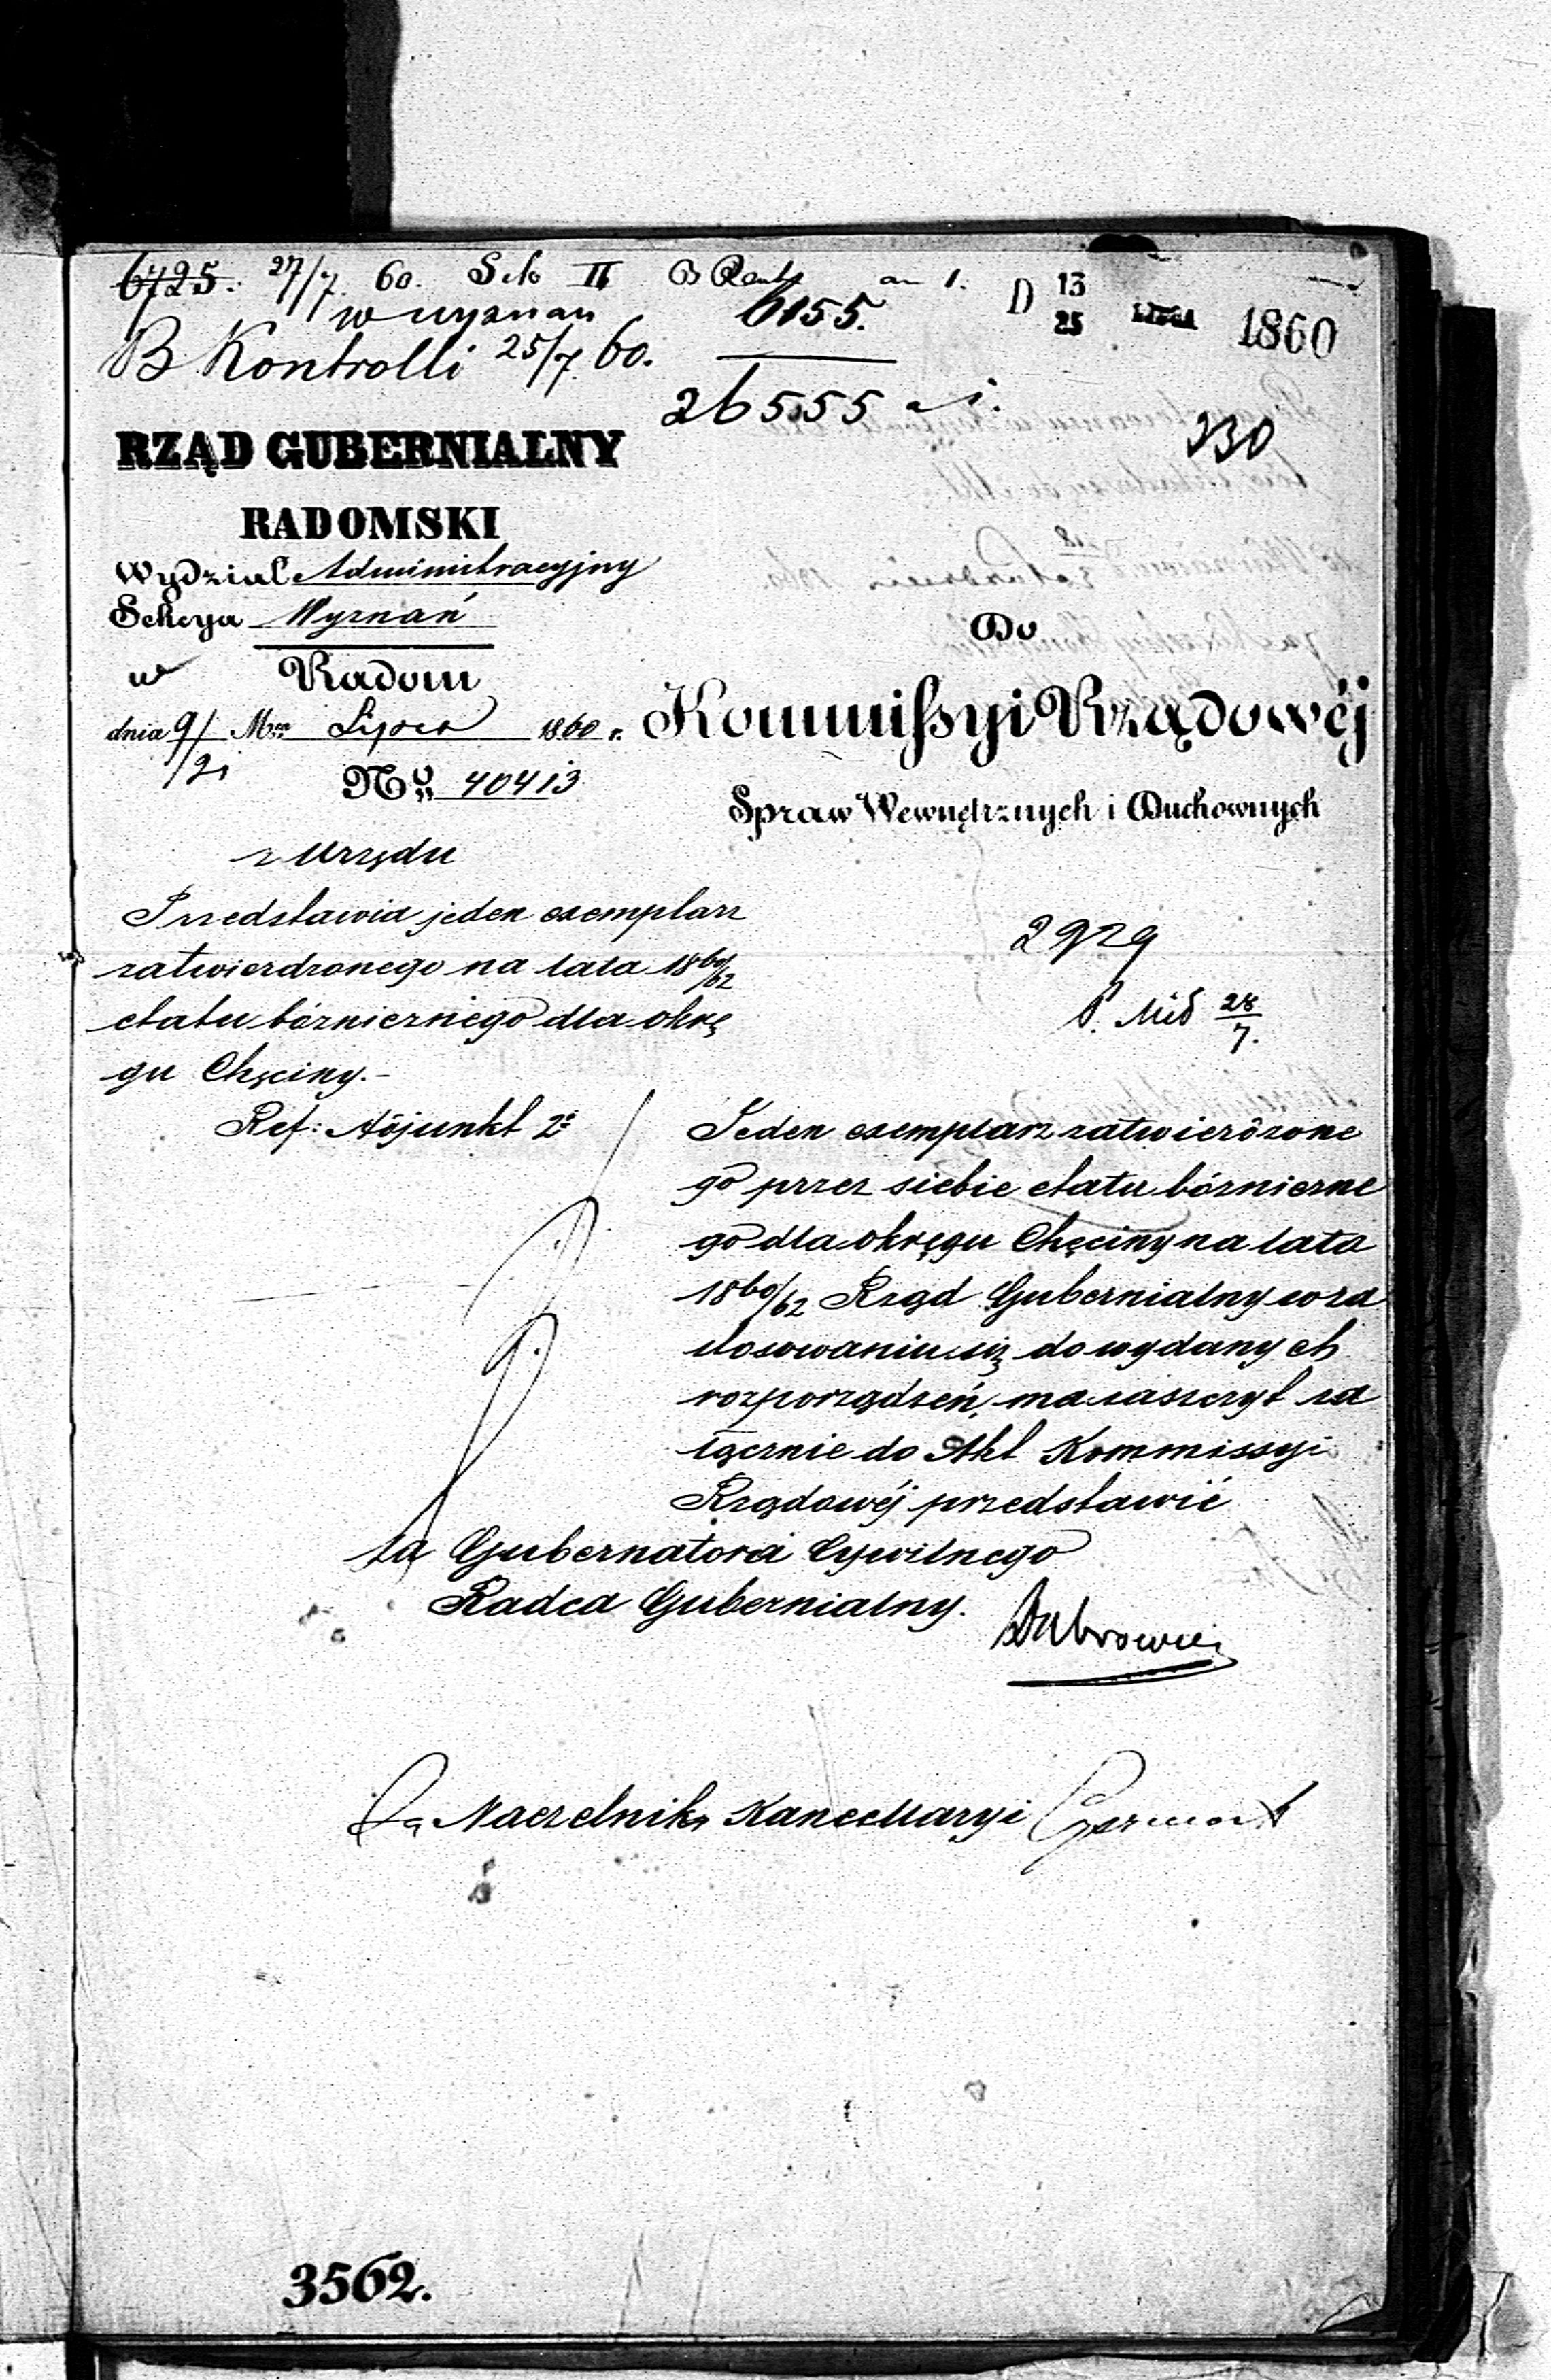 6725. 27/7 60. II B 6155. D 13/25 1860
B Kontrolli 25/7 60.
26555
230
RZĄD GUBERNIALNY
RADOMSKI
Wydział Administracyjny
Sekcya Wyznań
w Radom
dnia 9/21 Mca Lipca 1860 r.
No 40413
Do
Kommissyi Rządowéj
Spraw Wewnętrznych i Duchownych
z Urzędu
Przedstawia jeden exemplarz
zatwierdzonego na lata 1860/62
etatu bóżnicznego dla okrę
gu Chęciny.-
Ref: Adjunkt 2i
2929
28/7.
Jeden exemplarz zatwierdzone
go przez siebie etatu bóżniczne
go dla okręgu Chęciny na lata
1860/62 Rząd Gubernialny w za
stosowaniu się do wydanych
rozporządzeń, ma zaszczyt za
łącznie do Akt Kommissyi
Rządowéj przedstawić
za Gubernatora Cywilnego
Radca Gubernialny.
Za Naczelnika Kancellaryi
3562.